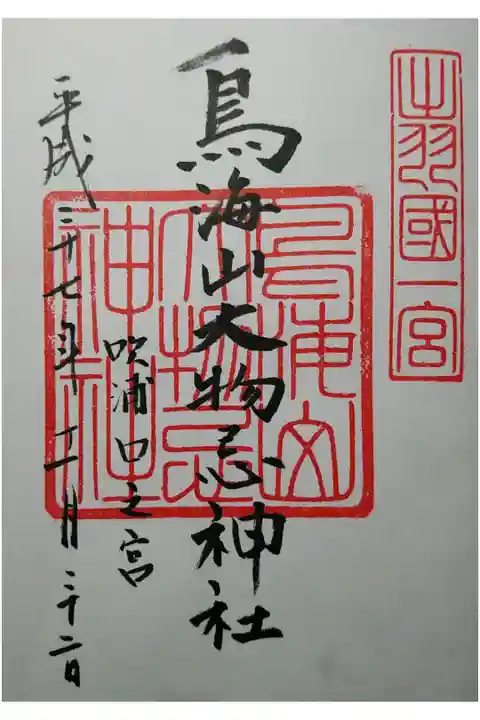 出羽國一宮
鳥海山
大物忌
神社
鳥海山大物忌神社
吹浦口之宮
平成二十七年十一月二十二日